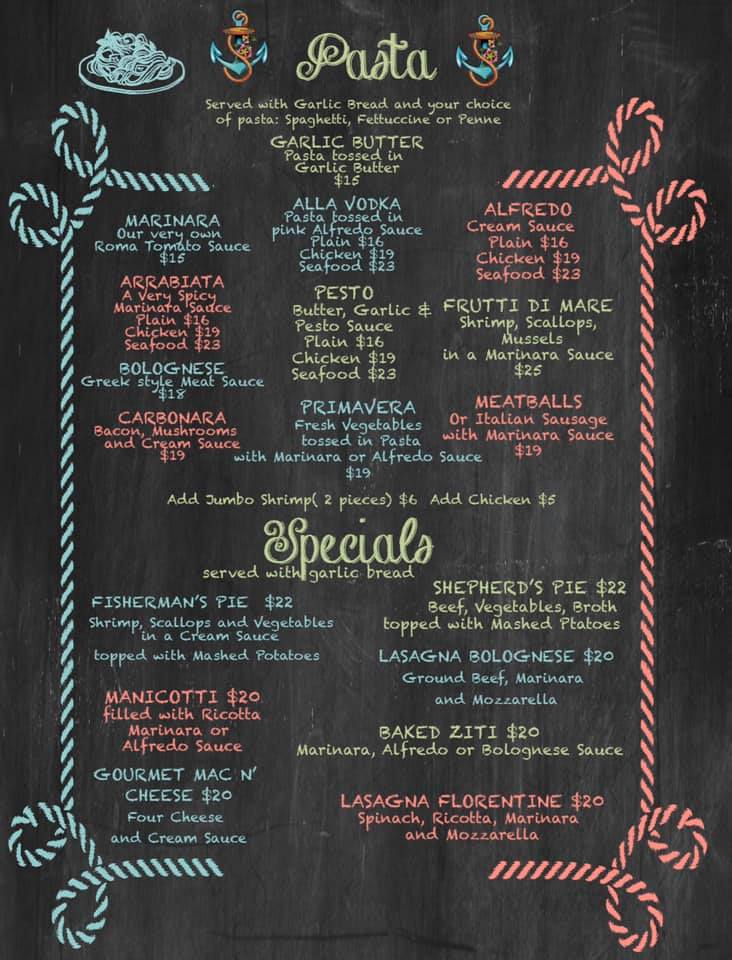 Pasta
Served with Garlic Bread and your choice
of pasta: Spaghetti, Fettuccine or Penne
GARLIC BUTTER
Pasta tossed in
Garlic Butter
$15
MARINARA
Our very own
Roma Tomato Sauce
$15
ARRABIATA
A Very Spicy
Marinara Sauce
Plain $16
Chicken $19
Seafood $23
BOLOGNESE
Greek style Meat Sauce
$18
CARBONARA
Bacon, Mushrooms
and Cream Sauce
$19
ALLA VODKA
Pasta tossed in
pink Alfredo Sauce
Plain $16
Chicken $19
Seafood $23
PESTO
Butter, Garlic &
Pesto Sauce
Plain $16
Chicken $19
Seafood $23
PRIMAVERA
Fresh Vegetables
tossed in Pasta
with Marinara or Alfredo Sauce
$19
ALFREDO
Cream Sauce
Plain $16
Chicken $19
Seafood $23
FRUTTI DI MARE
Shrimp, Scallops,
Mussels
in a Marinara Sauce
$25
MEATBALLS
Or Italian Sausage
with Marinara Sauce
$19
Add Jumbo Shrimp( 2 pieces) $6 Add Chicken $5
Specials
served with garlic bread
FISHERMAN'S PIE $22
Shrimp, Scallops and Vegetables
in a Cream Sauce
topped with Mashed Potatoes
MANICOTTI $20
filled with Ricotta
Marinara or
Alfredo Sauce
GOURMET MAC N'
CHEESE $20
Four Cheese
and Cream Sauce
SHEPHERD'S PIE $22
Beef, Vegetables, Broth
topped with Mashed Ptatoes
LASAGNA BOLOGNESE $20
Ground Beef, Marinara
and Mozzarella
BAKED ZITI $20
Marinara, Alfredo or Bolognese Sauce
LASAGNA FLORENTINE $20
Spinach, Ricotta, Marinara
and Mozzarella